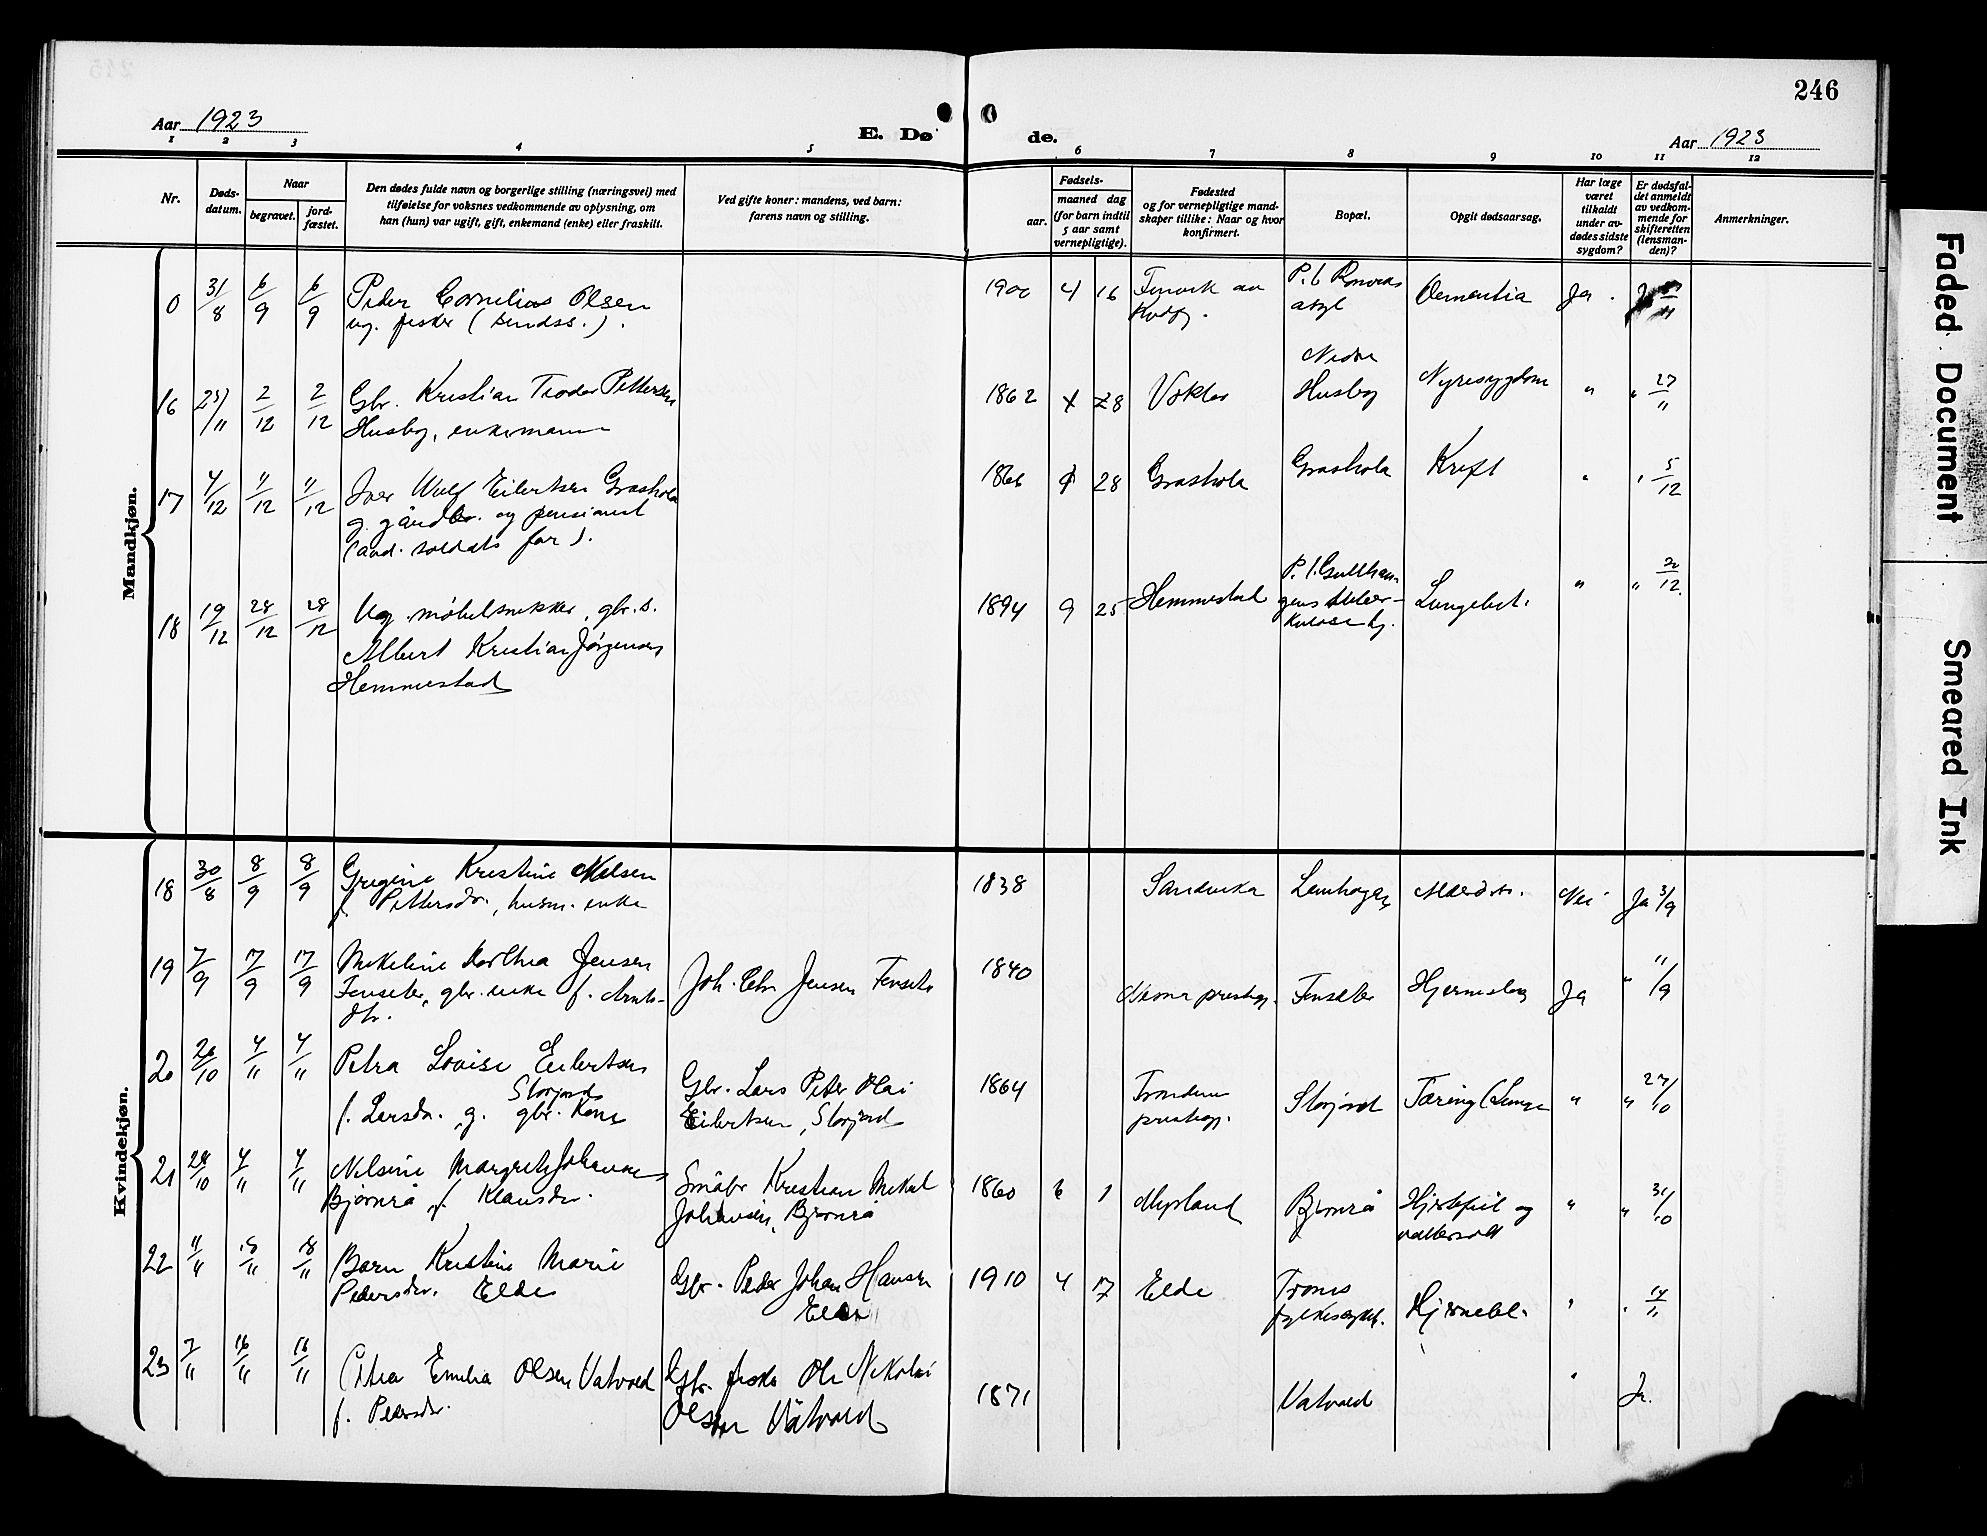 246
Aar 1923
E. Dø de.
Aar 1923
1 2 3 4 5 6 7 8 9 10 11 12
Nr.
Døds-
datum.
Naar
begravet.
jord-
fæstet.
Den dødes fulde navn og borgerlige stilling (næringsvei) med
tilføielse for voksnes vedkommende av oplysning, om
han (hun) var ugift, gift, enkemand (enke) eller fraskilt.
Ved gifte koner: mandens, ved barn:
farens navn og stilling.
Fødsels-
aar.
maaned dag
(for barn indtil
5 aar samt
vernepligtige).
Fødested
og for vernepligtige mand-
skaper tillike: Naar og hvor
konfirmert.
Bopæl.
Opgit dødsaarsag.
Har læge
været
tilkaldt
under av-
dødes sidste
sygdom?
Er dødsfal-
det anmeldt
av vedkom-
mende for
skifteretten
(lensman-
den)?
Anmerkninger.
Mandkjøn.
0 31/8 6/9 6/9 Peder Cornelius Olsen 1900 4 16
ug. fisker (sindss.).
asyl Dementia Ja.
16 2/12 2/12 Gbr. Kristian Teodor Pettersen 1862 28
Husby, enkemann
Nedre
Husby Nyresygdom " " 27/11
17 4/12 11/12 11/12 Iver Wulf Eilertsen Grashola 1866 28 Grashola Grashola Kreft " " 5/12
g. gårdbr. og pensionist
(avd. soldats far).
18 19/12 28/12 28/12 Ug. møbelsnekker, gbr. s. 1894 9 25 Hemmestad
Albert Kristian Jørgensen
Hemmestad
Lungebet. " "
Kvindekjøn.
18 30/8 8/9 8/9 Gregine Kristine Nilsen 1838 Sandvika Lemhogen Alderd. Nei Ja 3/9
f. Pettersdr., husm. enke
19 7/9 17/9 17/9 Mekeline Marthea Jensen Joh. Chr. Jensen Tenseter 1840
Tenseter, gbr. enke f. Arnts-
dtr.
prestegj. Tenseter Ja " 11/9
20 26/10 4/11 4/11 Petra Lovise Eilertsen Gbr. Lars Peter Olai 1864
Storjord
f. Larsdr. g. gbr. Kone Eilertsen, Storjord
Trondenes
prestegj. Storjord Tæring (Lunge " " 27/10
21 28/10 4/11 4/11 Nilsine Margrete Johansen Småbr Kristian Mekal 1860 6 1 Myrland Bjørnrå Hjertefeil og " " 31/10
Bjørnrå, f. Klausdr. Johansen, Bjørnrå
vattersott
22 11/11 18/11 18/11 Barn Kristine Marie Gbr. Peder Johan Hansen 1910 4 17 Elde Troms
Pedersdr. Elde Elde
fylkessykeh. Hjernebl. " " 14/11
23 7/11 16/11 16/11 Petra Emilia Olsen Vatvold Gbr. fisker Ole Nikolai 1871 Vatvold " Ja.
f. Pedersdr. Olsen Vatvold
Faded Document
Smeared Ink